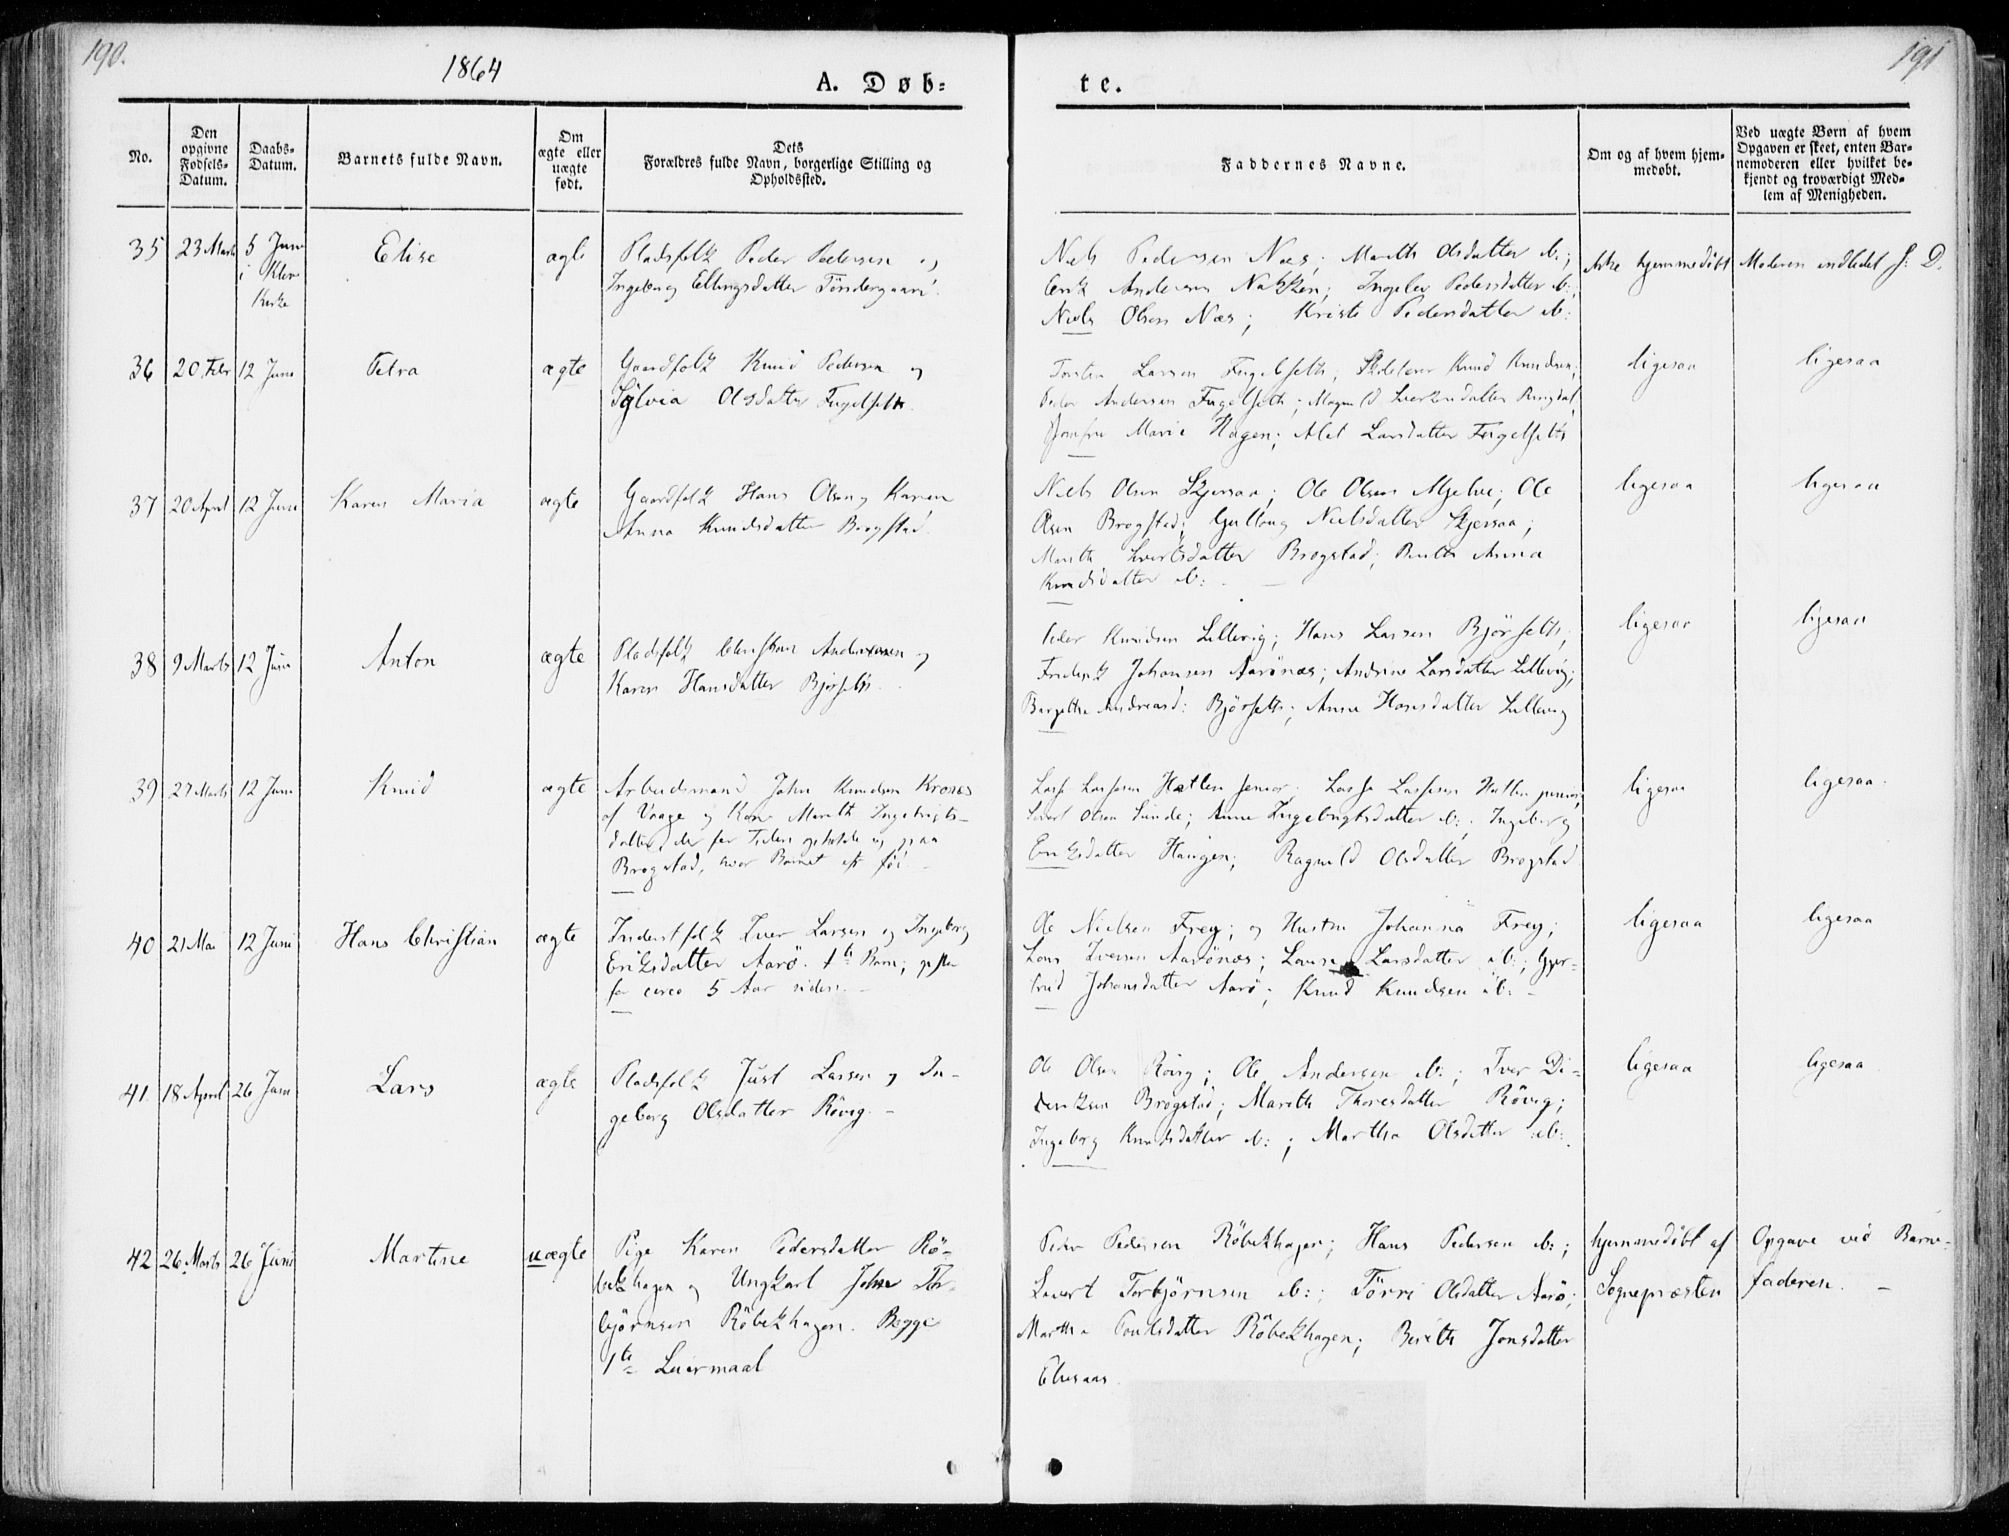 190.
1864
191
A. Døb=
te.
No.
Den opgivne Fødsels-Datum.
Daabs-Datum.
Barnets fulde Navn.
Om ægte eller uægte født.
Dets
Forældres fulde Navn, borgerlige Stilling og
Opholdssted.
Faddernes Navne.
Om og af hvem hjem-
medøbt.
Ved uægte Børn af hvem
Opgaven er skeet, enten Bar-
nemoderen eller hvilket be-
kjendt og troværdigt Med-
lem af Menigheden.
35 23 Marts 5 Juni i Klev Kirke Elise ægte
Pladsfolk Peder Pedersen og
Ingeborg Ellingsdatter Töndergaard.
Niels Pedersen Næs; Marith Olsdatter ib:;
Erik Andersen Nakken; Ingebor Pedersdatter ib:;
Niels Olsen Næs; Kristi Pedersdatter ib:
ikke hjemmedöbt
Moderen indledet s: D.
36 20 Febr 12 Juni Petra ægte
Gaardfolk Knud Pedersen og
Sylvia Olsdatter Fugelseth.
Torsten Larsen Fugelseth; Skolelærer Knud Knudsen;
Peder Andersen Fugelseth; Magnild Siversdatter Ringdal
Jomfru Marie Hagen; Alet Larsdatter Fugelseth
ligesaa
ligesaa
37 20 April 12 Juni Karen Maria ægte
Gaardfolk Hans Olsen og Karen
Anna Knudsdatter Brogstad.
Niels Olsen Skjersaa; Ole Olsen Mjelve; Ole
Olsen Brogstad; Gullaug Nielsdatter Skjersaa;
Marith Sivertsdatter Brogstad; Berith Anna
Knudsdatter ib:
ligesaa
ligesaa
38 9 Marts 12 Juni Anton ægte
Pladsfolk Christian Andersen og
Karen Hansdatter Bjørseth.
Peder Knudsen Lillevig; Hans Larsen Bjørseth;
Frederik Johansen Aarönæs; Andrine Larsdatter Lillevig;
Bergithe Andreasd: Bjørseth; Anne Hansdatter Lillevig
ligesaa
ligesaa
39 27 Marts 12 Juni Knud ægte
Arbeidsmand John Knudsen Kronæs
af Vaage og Kone Marith Ingebrigts-
datter, der for Tiden opholde sig paa
Brogstad, hvor Barnet er föd.
Lasse Lassesen Hatlen senior; Lasse Lassesen Hatlen junior;
Sivert Olsen Sunde; Anne Ingebrigtsdatter ib:; Ingeborg
Eriksdatter Haugen; Ragnild Olsdatter Brogstad
ligesaa
ligesaa.
40 21 Mai 12 Juni Hans Christian ægte
Inderstfolk Iver Larsen og Ingeborg
Eriksdatter Aarö. 1te Barn; gifte
for circa 5 Aar siden.
Ole Nielsen Frey; og Hustru Johanna Frey;
Lars Iversen Aarönæs; Lovise Larsdatter ib:; Gjer-
trud Johansdatter Aarö; Knud Knudsen ib:
ligesaa
ligesaa
41. 18 April 26 Juni Lars ægte
Pladsfolk Just Larsen og In-
geborg Olsdatter Rövig.
Ole Olsen Rövig; Ole Andersen ib:; Iver Di-
deriksen Brogstad; Marith Thoresdatter Rövig;
Ingeborg Knudsdatter ib:; Martha Olsdatter ib:
ligesaa
ligesaa
42 26 Marts 26 Juni Martine uægte
Pige Karen Pedersdatter Rö-
bekhagen og Ungkarl John Tor-
björnsen Röbekhagen. Begge
1te Leiermaal
Peder Pedersen Röbekhagen; Hans Pedersen ib:;
Sivert Torbjørnsen ib:; Törri Olsdatter Aarö;
Martha Olsdatter Röbekhagen; Berith Jonsdatter
hjemmedöbt af
Sognepræsten
Opgave ved Barne-
faderen.